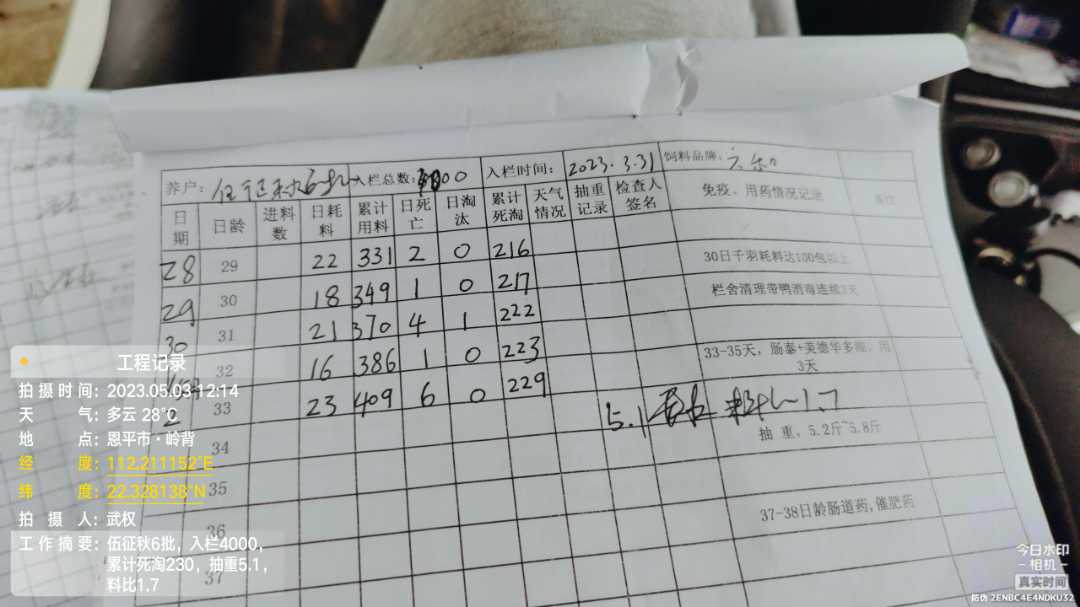 养户: 伍征秋6批 入栏总数: 入栏时间: 2023.3.31 饲料品牌:
日期 日龄 进料数 日耗料 累计用料 日死亡 日淘汰 累计死淘 天气情况 抽重记录 检查人签名 免疫、用药情况记录 备注
28 29 22 331 2 0 216 30日千羽耗料达100包以上
29 30 18 349 1 0 217 栏舍清理带鸭消毒连续3天
30 31 21 370 4 1 222
32 16 386 1 0 223 33-35天，肠泰+美德华多维，用3天
2 33 23 409 6 0 229 5.1 料比1.7
34 抽重，5.2斤~5.8斤
35
36 37-38日龄肠道药,催肥药
37
工程记录
拍摄时间: 2023.05.03 12:14
天气: 多云 28℃
地点: 恩平市·岭背
经度: 112.211152°E
纬度: 22.328138°N
拍摄人: 武权
工作摘要: 伍征秋6批，入栏4000，
累计死淘230，抽重5.1，
料比1.7
今日水印
-相机-
真实时间
防伪 2ENBC4E4NDKU32